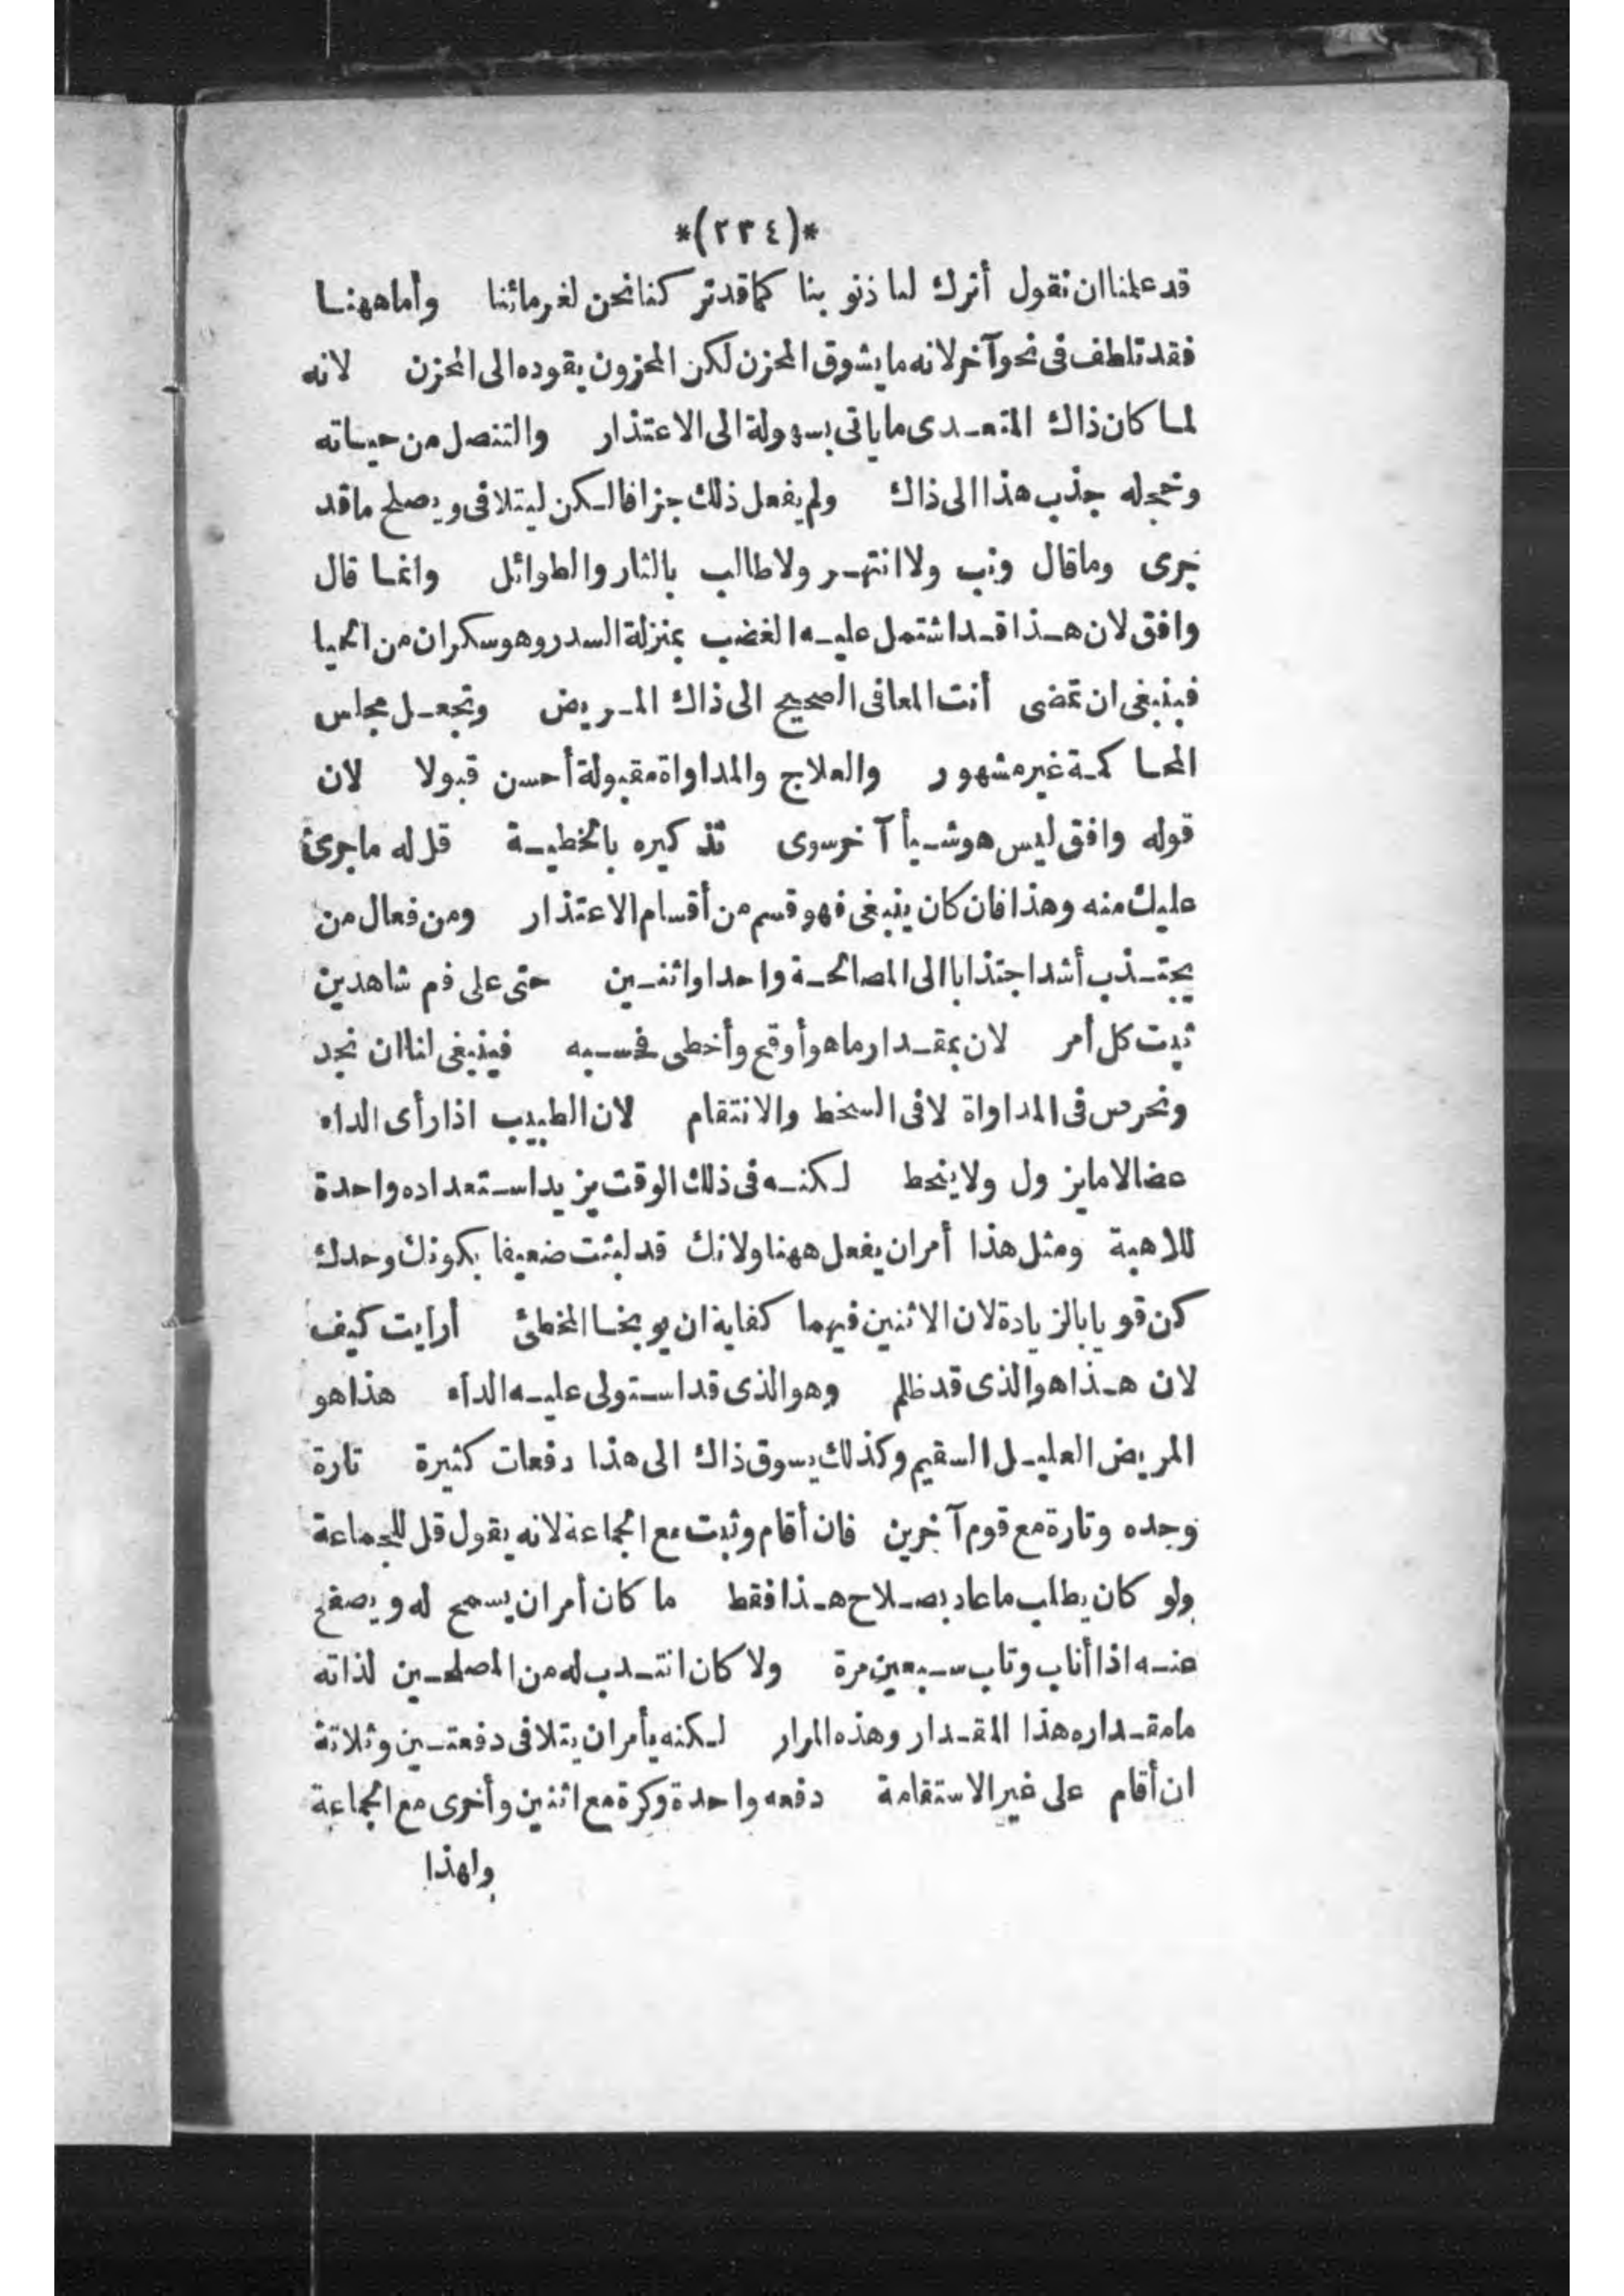 *(٢٣٤)*
قد علمنا ان نقول أترك لنا ذنوبنا كما قد تركنا نحن لغرمائنا وأما ههنا
فقد تلطف فى نحو آخر لانه ما يشوق المحزن لكن المحزون يقوده الى المحزن لانه
لما كان ذاك المتعدى ما ياتى بسهولة الى الاعتذار والتنصل من حياته
وخجله جذب هذا الى ذاك ولم يفعل ذلك جزافا لكن ليتلافى ويصلح ما قد
جرى وما قال وبن ولا انتهر ولا طالب بالثار والطوائل وانما قال
وافق لان هذا قد اشتمل عليه الغضب بمنزلة السدر وهو سكران من الحيا
فينبغى ان تمضى أنت المعافى الصحيح الى ذاك المريض وتجعل مجلس
المحاكمة غير مشهور والعلاج والمداواة مقبولة أحسن قبولا لان
قوله وافق ليس هو شيأ آخر سوى تذكيره بالخطية قل له ما جرى
عليك منه وهذا فان كان ينبغى فهو قسم من أقسام الاعتذار ومن فعال من
يجتذب أشد اجتذابا الى المصالحة واحدا واثنين حتى على فم شاهدين
ثبت كل أمر لان بمقدار ما هو أوقح وأخطى فحسبه فينبغى لنا ان نجد
ونحرص فى المداواة لا فى السخط والانتقام لان الطبيب اذا رأى الداء
عضالا ما يزول ولا ينحط لكنه فى ذلك الوقت يزيد استعداده واحدة
للاهبة ومثل هذا أمر ان يفعل ههنا ولانك قد لبثت ضعيفا بكونك وحدك
كن قويا بالزيادة لان الاثنين فيهما كفاية ان يوبخا المخطئ أرايت كيف
لان هذا هو الذى قد ظلم وهو الذى قد استولى عليه الداء هذا هو
المريض العليل السقيم وكذلك يسوق ذاك الى هذا دفعات كثيرة تارة
وحده وتارة مع قوم آخرين فان أقام وثبت مع الجماعة لانه يقول قل للجماعة
ولو كان يطلب ما عاد بصلاح هذا فقط ما كان أمر ان يسمح له ويصفح
عنه اذا أناب وتاب سبعين مرة ولا كان انتدب له من المصلحين لذاته
ما مقداره هذا المقدار وهذه المرار لكنه يأمر ان يتلافى دفعتين وثلاثة
ان أقام على غير الاستقامة دفعه واحدة وكرة مع اثنين وأخرى مع الجماعة
ولهذا